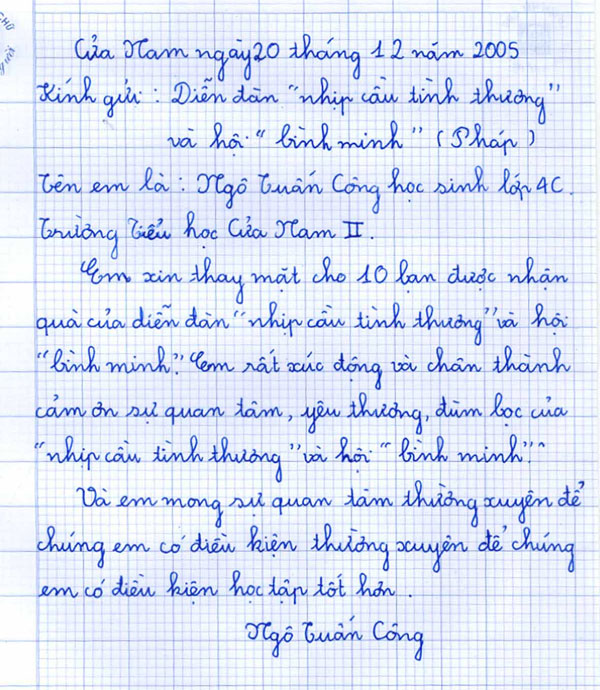 Cửa Nam ngày 20 tháng 12 năm 2005
Kính gửi : Diễn đàn "nhịp cầu tình thương"
và hội "bình minh" (Pháp)
Tên em là : Ngô Tuấn Công học sinh lớp 4C.
Trường Tiểu học Cửa Nam II.
Em xin thay mặt cho 10 bạn được nhận
quà của diễn đàn "nhịp cầu tình thương" và hội
"bình minh". Em rất xúc động và chân thành
cảm ơn sự quan tâm, yêu thương, đùm bọc của
"nhịp cầu tình thương" và hội "bình minh".
Và em mong sự quan tâm thường xuyên để
chúng em có điều kiện thường xuyên để chúng
em có điều kiện học tập tốt hơn.
Ngô Tuấn Công